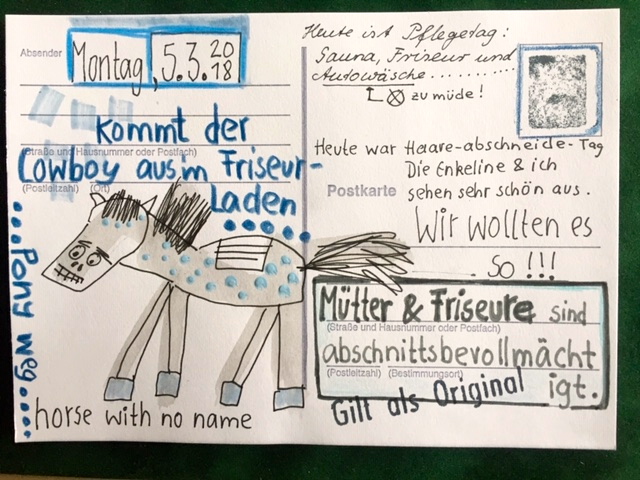 Absender
Montag, 5.3. 20
18
kommt der
(Straße und Hausnummer oder Postfach)
Cowboy aus'm Friseur-
(Postleitzahl) (Ort)
Laden
...Pony weg....
horse with no name
Heute ist Pflegetag:
Sauna, Friseur und
Autowäsche..........
zu müde!
Heute war Haare-abschneide-Tag
Die Enkeline & ich
Postkarte
sehen sehr schön aus.
Wir wollten es
So!!!
Mütter & Friseure sind
(Straße und Hausnummer oder Postfach)
abschnittsbevollmächt
(Postleitzahl) (Bestimmungsort)
igt.
Gilt als Original